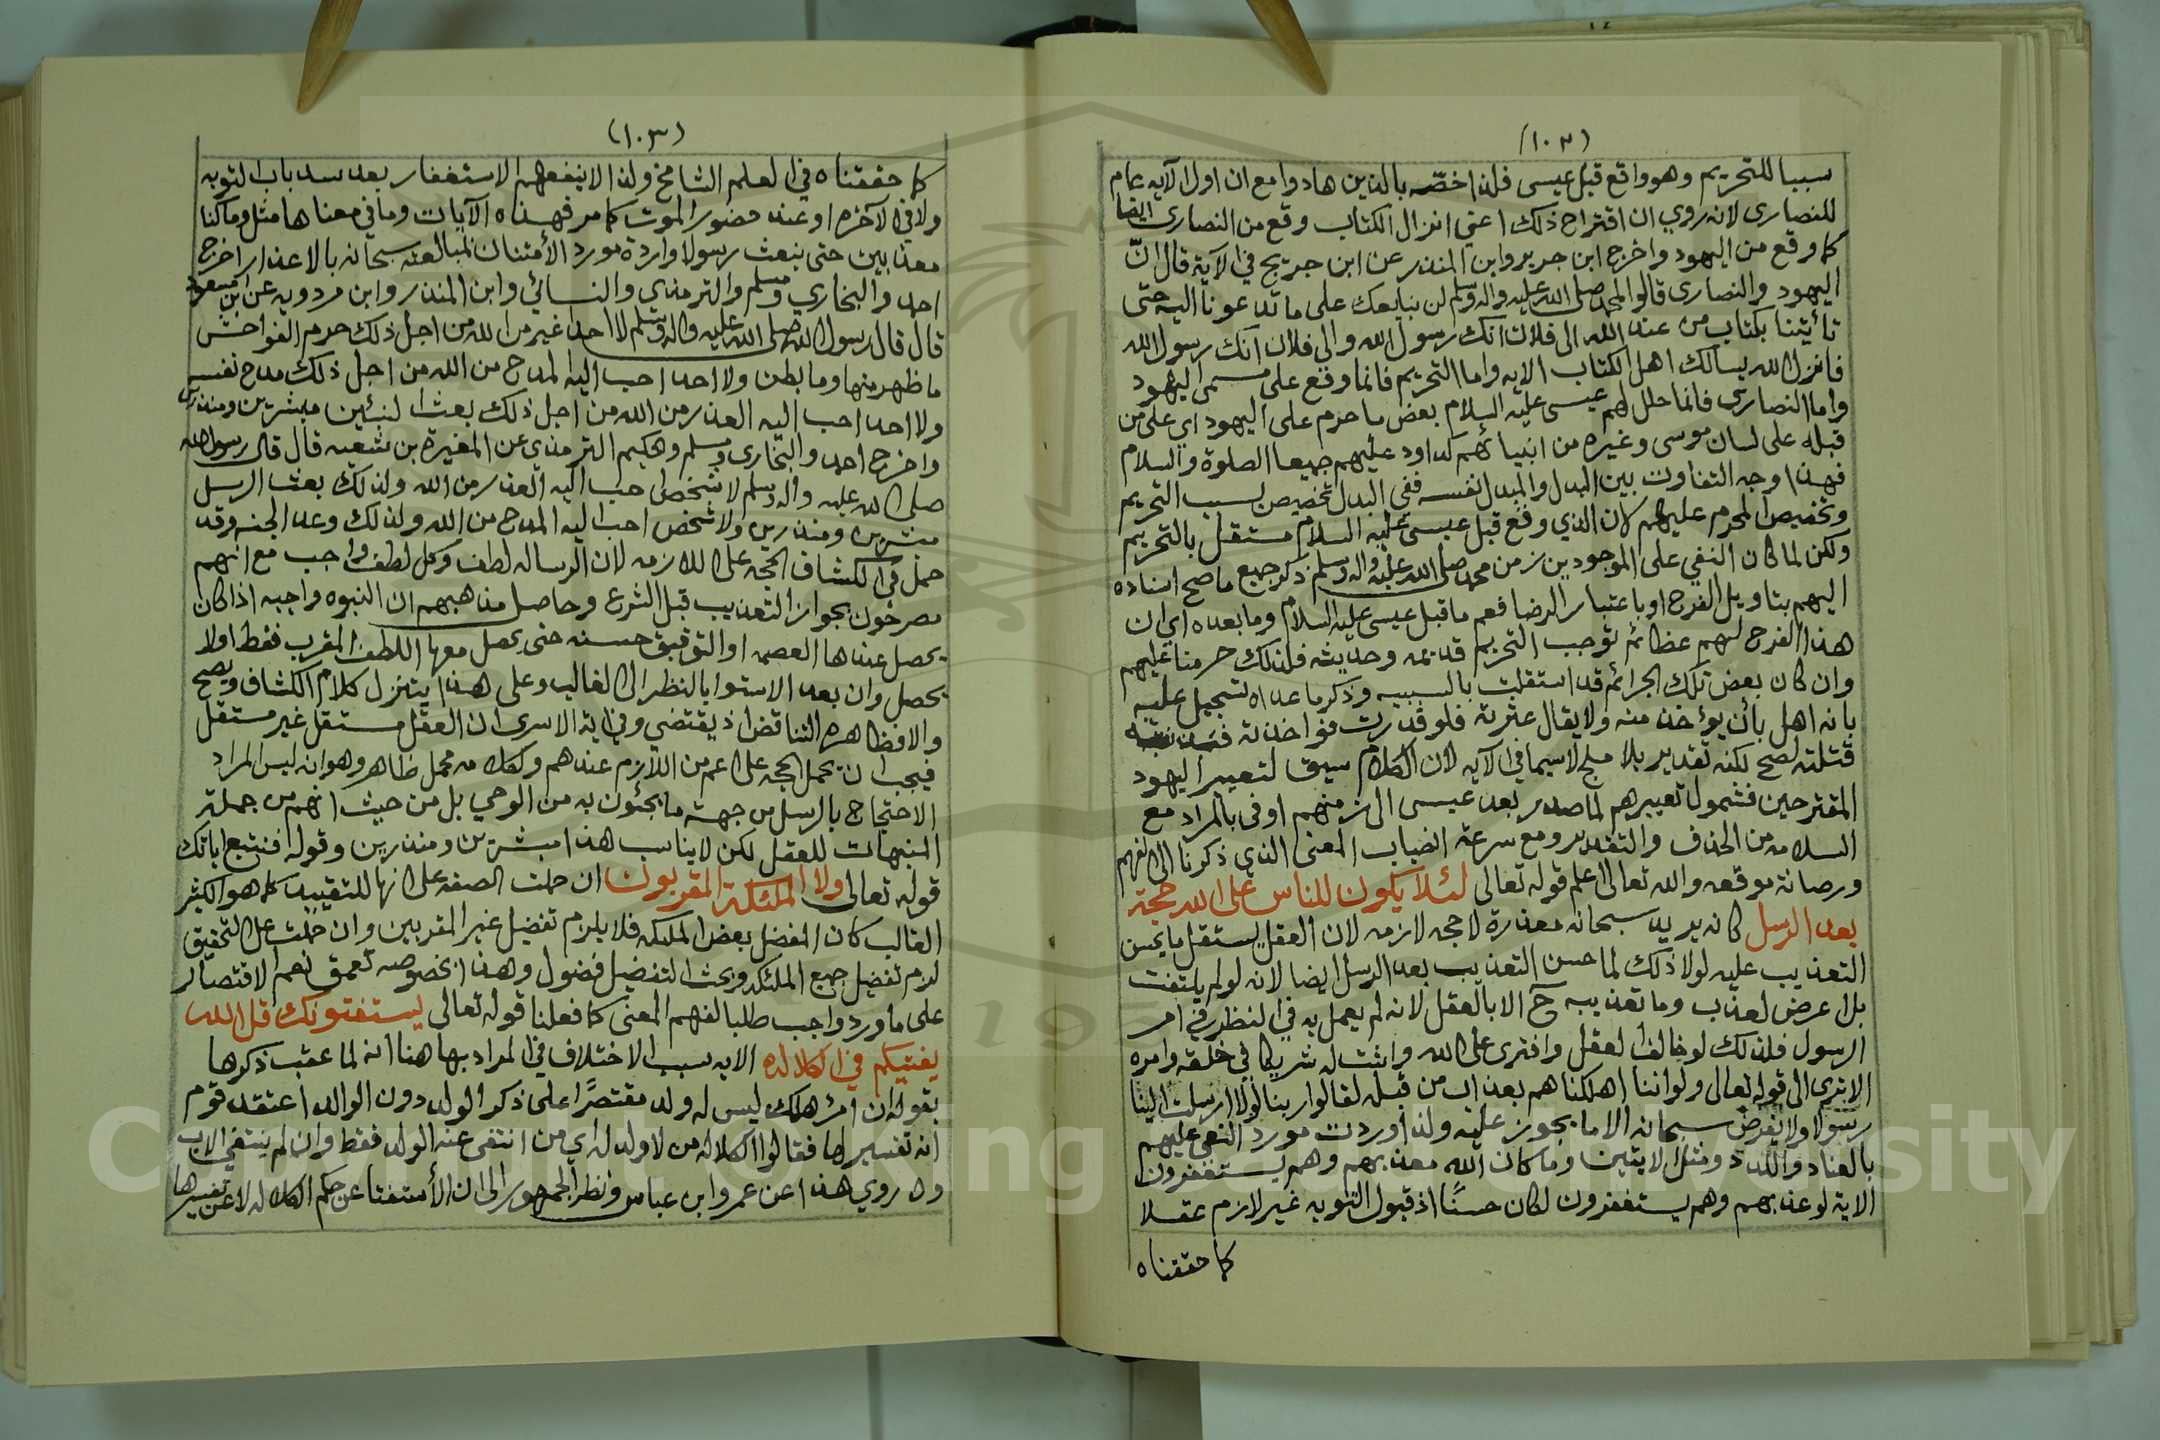 (١٠٢)
سببا للتحريم وهو واقع قبل عيسى فلذا خصّه بالذين هادوا مع ان اول الآيه عام
للنصارى لانه روي ان اقتراح ذلك اعني انزال الكتاب وقع من النصارى ايضا
كما وقع من اليهود واخرج ابن جرير وابن المنذر عن ابن جريج في الآية قال انّ
اليهود والنصارى قالوا لمحمد صلى الله عليه واله وسلم لن نبايعك على ما تدعونا اليه حتى
تأتينا بكتاب من عند الله الى فلان انك رسول الله والى فلان انك رسول الله
فانزل الله يسالك اهل الكتاب الايه واما التحريم فانما وقع على مسمى اليهود
واما النصارى فانما حلل لهم عيسى عليه السلام بعض ما حرم على اليهود اي على من
قبله على لسان موسى وغيره من انبيائهم كداود عليهم جميعا الصلوة والسلام
فهذا وجه التفاوت بين البدل والمبدل نفسه ففي البدل تخصيص بسبب التحريم
وتخصيص المحرم عليهم لان الذي وقع قبل عيسى عليه السلام مستقل بالتحريم
ولكن لما كان النفي على الموجودين زمن محمد صلى الله عليه واله وسلم ذكر جميع ما صح اسناده
اليهم بتاويل الفرح او باعتبار الرضا فعم ما قبل عيسى عليه السلام وما بعده اي ان
هذا الفرح لهم عظائم توجب التحريم قديمه وحديثه فلذلك حرمنا عليهم
وان كان بعض تلك الجرائم قد استقلت بالسببيه وذكر ما عداه لتسجيل عليه
بانه اهل بأن يؤاخذ منه ولا يقال عثرته فلو قدرت مؤاخذته
قتلته لصح لكنه تقدير بلا ملجٍ لاسيما في الآيه لان الكلام سيق لتعيير اليهود
المقترحين فشمول تعييرهم لما صدر بعد عيسى الى زمنهم اوفى بالمراد مع
السلامه من الحذف والتقدير ومع سرعة انصباب المعنى الذي ذكرنا الى الفهم
ورصانة موقعه والله تعالى اعلم قوله تعالى لئلا يكون للناس على الله حجة
بعد الرسل كانه يريد سبحانه معذرة لا حجه لازمه لان العقل يستقل ما يحسن
التعذيب عليه لولا ذلك لما حسن التعذيب بعد الرسل ايضا لانه لو لم يلتفت
بل اعرض لعذب وما تعذيبه حٓ الا بالعقل لانه لم يعمل به في النظر في امر
الرسول فلذلك لو خالف العقل وافترى على الله واثبت له شريكا في خلقه وامره
الا ترى الى قوله تعالى ولو اننا اهلكناهم بعذاب من قبله لقالوا ربنا لولا ارسلت الينا
رسولا ولا يفرض سبحانه الا ما يجوز عليه ولذا وردت مورد النعي عليهم
بالعناد واللدد ومثل الايتين وما كان الله معذبهم وهم يستغفرون
الاية لو عذبهم وهم يستغفرون لكان حسنًا اذ قبول التوبه غير لازم عقلا
كما حققناه
(١٠٣)
كما حققناه في العلم الشامخ ولذا لا ينفعهم الاستغفار بعد سد باب التوبه
ولا في الآخره او عند حضور الموت كما مر فهذه الآيات وما في معناها مثل وما كنا
معذبين حتى نبعث رسولا واردة مورد الأمتنان لمبالغته سبحانه بالاعذار اخرج
احمد والبخاري ومسلم والترمذي والنسائي وابن المنذر وابن مردويه عن ابن مسعود
قال قال رسول الله صلى الله عليه واله وسلم لا احد اغير من الله من اجل ذلك حرم الفواحش
ما ظهر منها وما بطن ولا احد احب اليه المدح من الله من اجل ذلك مدح نفسه
ولا احد احب اليه العذر من الله من اجل ذلك بعث النبئين مبشرين ومنذرين
واخرج احمد والبخاري ومسلم وحكيم الترمذي عن المغيرة بن شعبه قال قال رسول الله
صلى الله عليه واله وسلم لا شخص احب اليه العذر من الله ولذلك بعث الرسل
مبشرين ومنذرين ولا شخص احب اليه المدح من الله ولذلك وعد الجنه وقد
حمل في الكشاف الحجه على اللازمه لان الرساله لطف وكل لطف واجب مع انهم
مصرحون بجواز التعذيب قبل الشرع وحاصل مذاهبهم ان النبوه واجبه اذا كان
يحصل عندها العصمه او التوفيق حسنه حتى يحصل معها اللطف المقرب فقط اولا
يحصل وان بعد الاستوا بالنظر الى الغالب وعلى هذا يتنزل كلام الكشاف ويصح
والا فظاهره التناقض اذ يقتضي وفي اية الاسرى ان العقل مستقل غير مستقل
فيجب ان يحمل الحجه على اعم من اللازم عندهم وكلامه محمل ظاهر وهو انه ليس المراد
الاحتجاج بالرسل من جهة ما يجئون به من الوحي بل من حيث انهم من جملة
المنبهات للعقل لكن لا يناسب هذا مبشرين ومنذرين وقوله فنتبع اياتك
قوله تعالى ولا الملئكة المقربون ان حملت الصفه على انها للتقييد كما هو الكثير
الغالب كان المفضل بعض الملئكه فلا يلزم تفضيل غير المقربين وان حملت على التحقيق
لزم تفضيل جميع الملئكه وبحث التفضيل فضول وهذا بخصوصه تعمق نعم الاقتصار
على ما ورد واجب طلبا لفهم المعنى كما فعلنا قوله تعالى يستفتونك قل الله
يفتيكم في الكلاله الايه سبب الاختلاف في المراد بها هنا انه لما عقب ذكرها
بقوله ان امرؤ هلك ليس له ولد مقتصرًا على ذكر الولد دون الوالد اعتقد قوم
انه تفسير لها فقالوا الكلاله من لا ولد له اي من انتفى عنه الولد فقط وان لم ينتفي الاب
وقد روي هذا عن عمر وابن عباس ونظر الجمهور الى ان الأستفتا عن حكم الكلاله لا عن تفسيرها